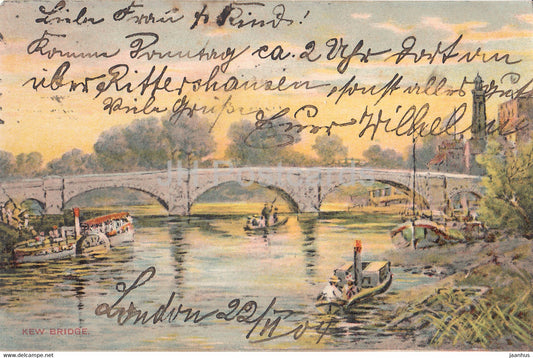 Liebe Frau & Kind!
Komme Sonntag ca. 2 Uhr dort an
über Rittershausen, sonst alles gut
Viele Grüße
Euer Wilhelm
London 22/VI 04
KEW BRIDGE.
www.delcampe.net
jaanhus